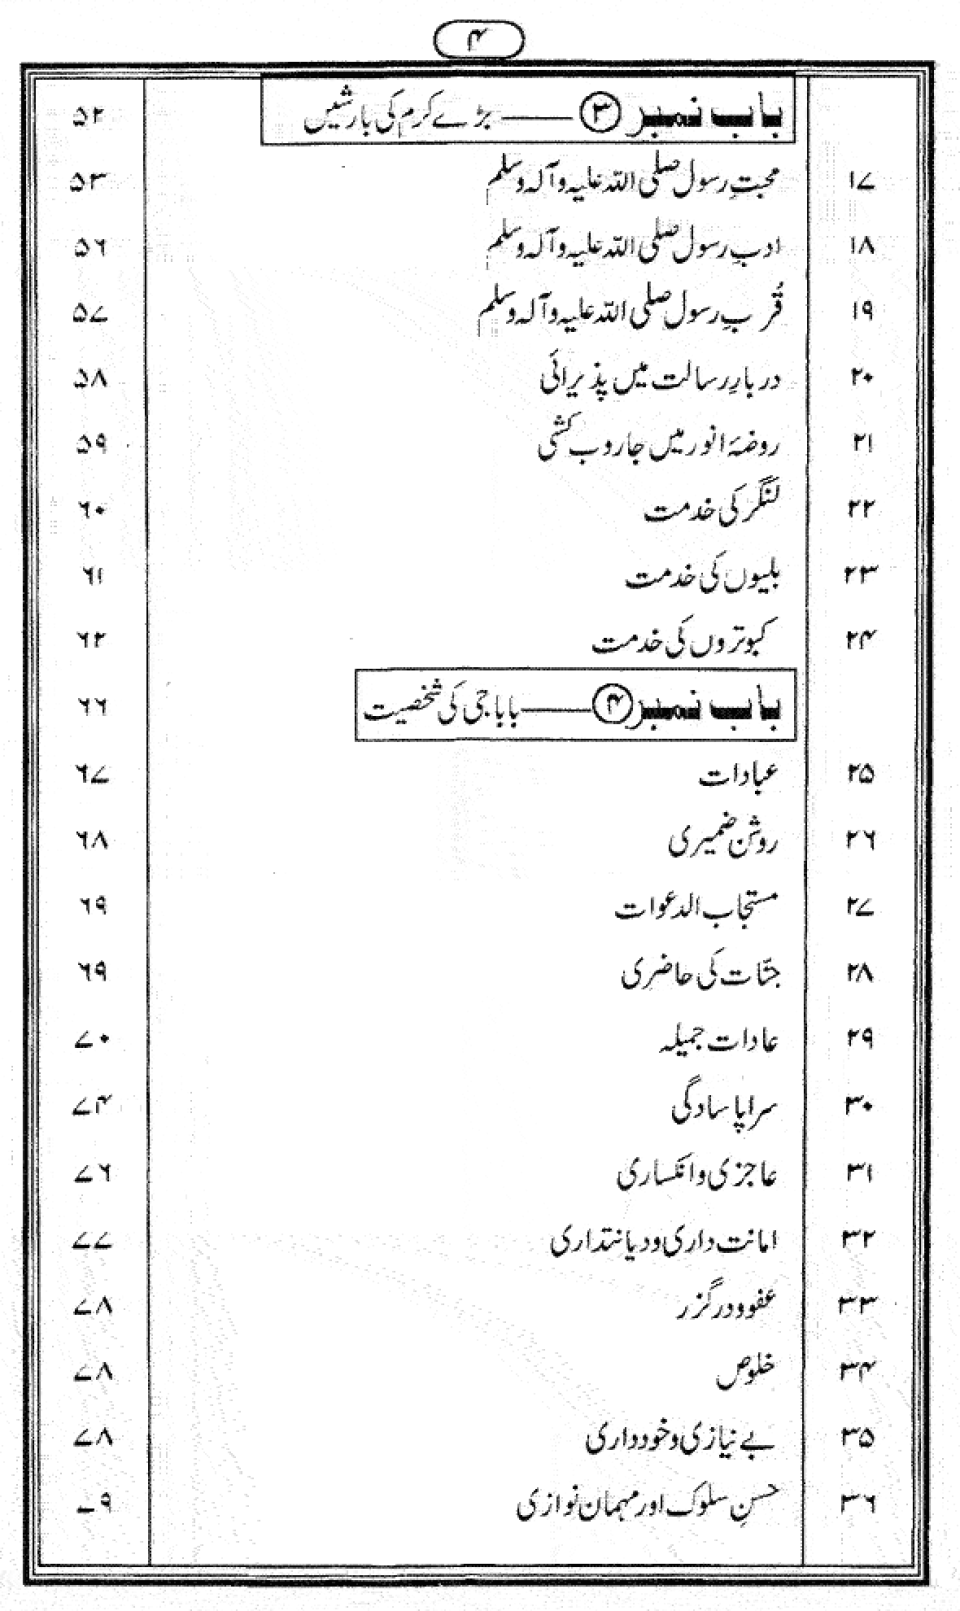 ۴
باب نمبر ۳ —— بڑے کرم کی بارشیں ۵۲
۱۷ محبتِ رسول صلی اللہ علیہ وآلہ وسلم ۵۳
۱۸ ادبِ رسول صلی اللہ علیہ وآلہ وسلم ۵۶
۱۹ قُربِ رسول صلی اللہ علیہ وآلہ وسلم ۵۷
۲۰ دربارِ رسالت میں پذیرائی ۵۸
۲۱ روضۂ انور میں جاروب کشی ۵۹
۲۲ لنگر کی خدمت ۶۰
۲۳ بلیوں کی خدمت ۶۱
۲۴ کبوتروں کی خدمت ۶۲
باب نمبر ۴ —— بابا جی کی شخصیت ۶۶
۲۵ عبادات ۶۷
۲۶ روشن ضمیری ۶۸
۲۷ مستجاب الدعوات ۶۹
۲۸ جنّات کی حاضری ۶۹
۲۹ عادات جمیلہ ۷۰
۳۰ سراپا سادگی ۷۴
۳۱ عاجزی و انکساری ۷۶
۳۲ امانت داری و دیانتداری ۷۷
۳۳ عفو و درگزر ۷۸
۳۴ خلوص ۷۸
۳۵ بے نیازی و خودداری ۷۸
۳۶ حسنِ سلوک اور مہمان نوازی ۷۹